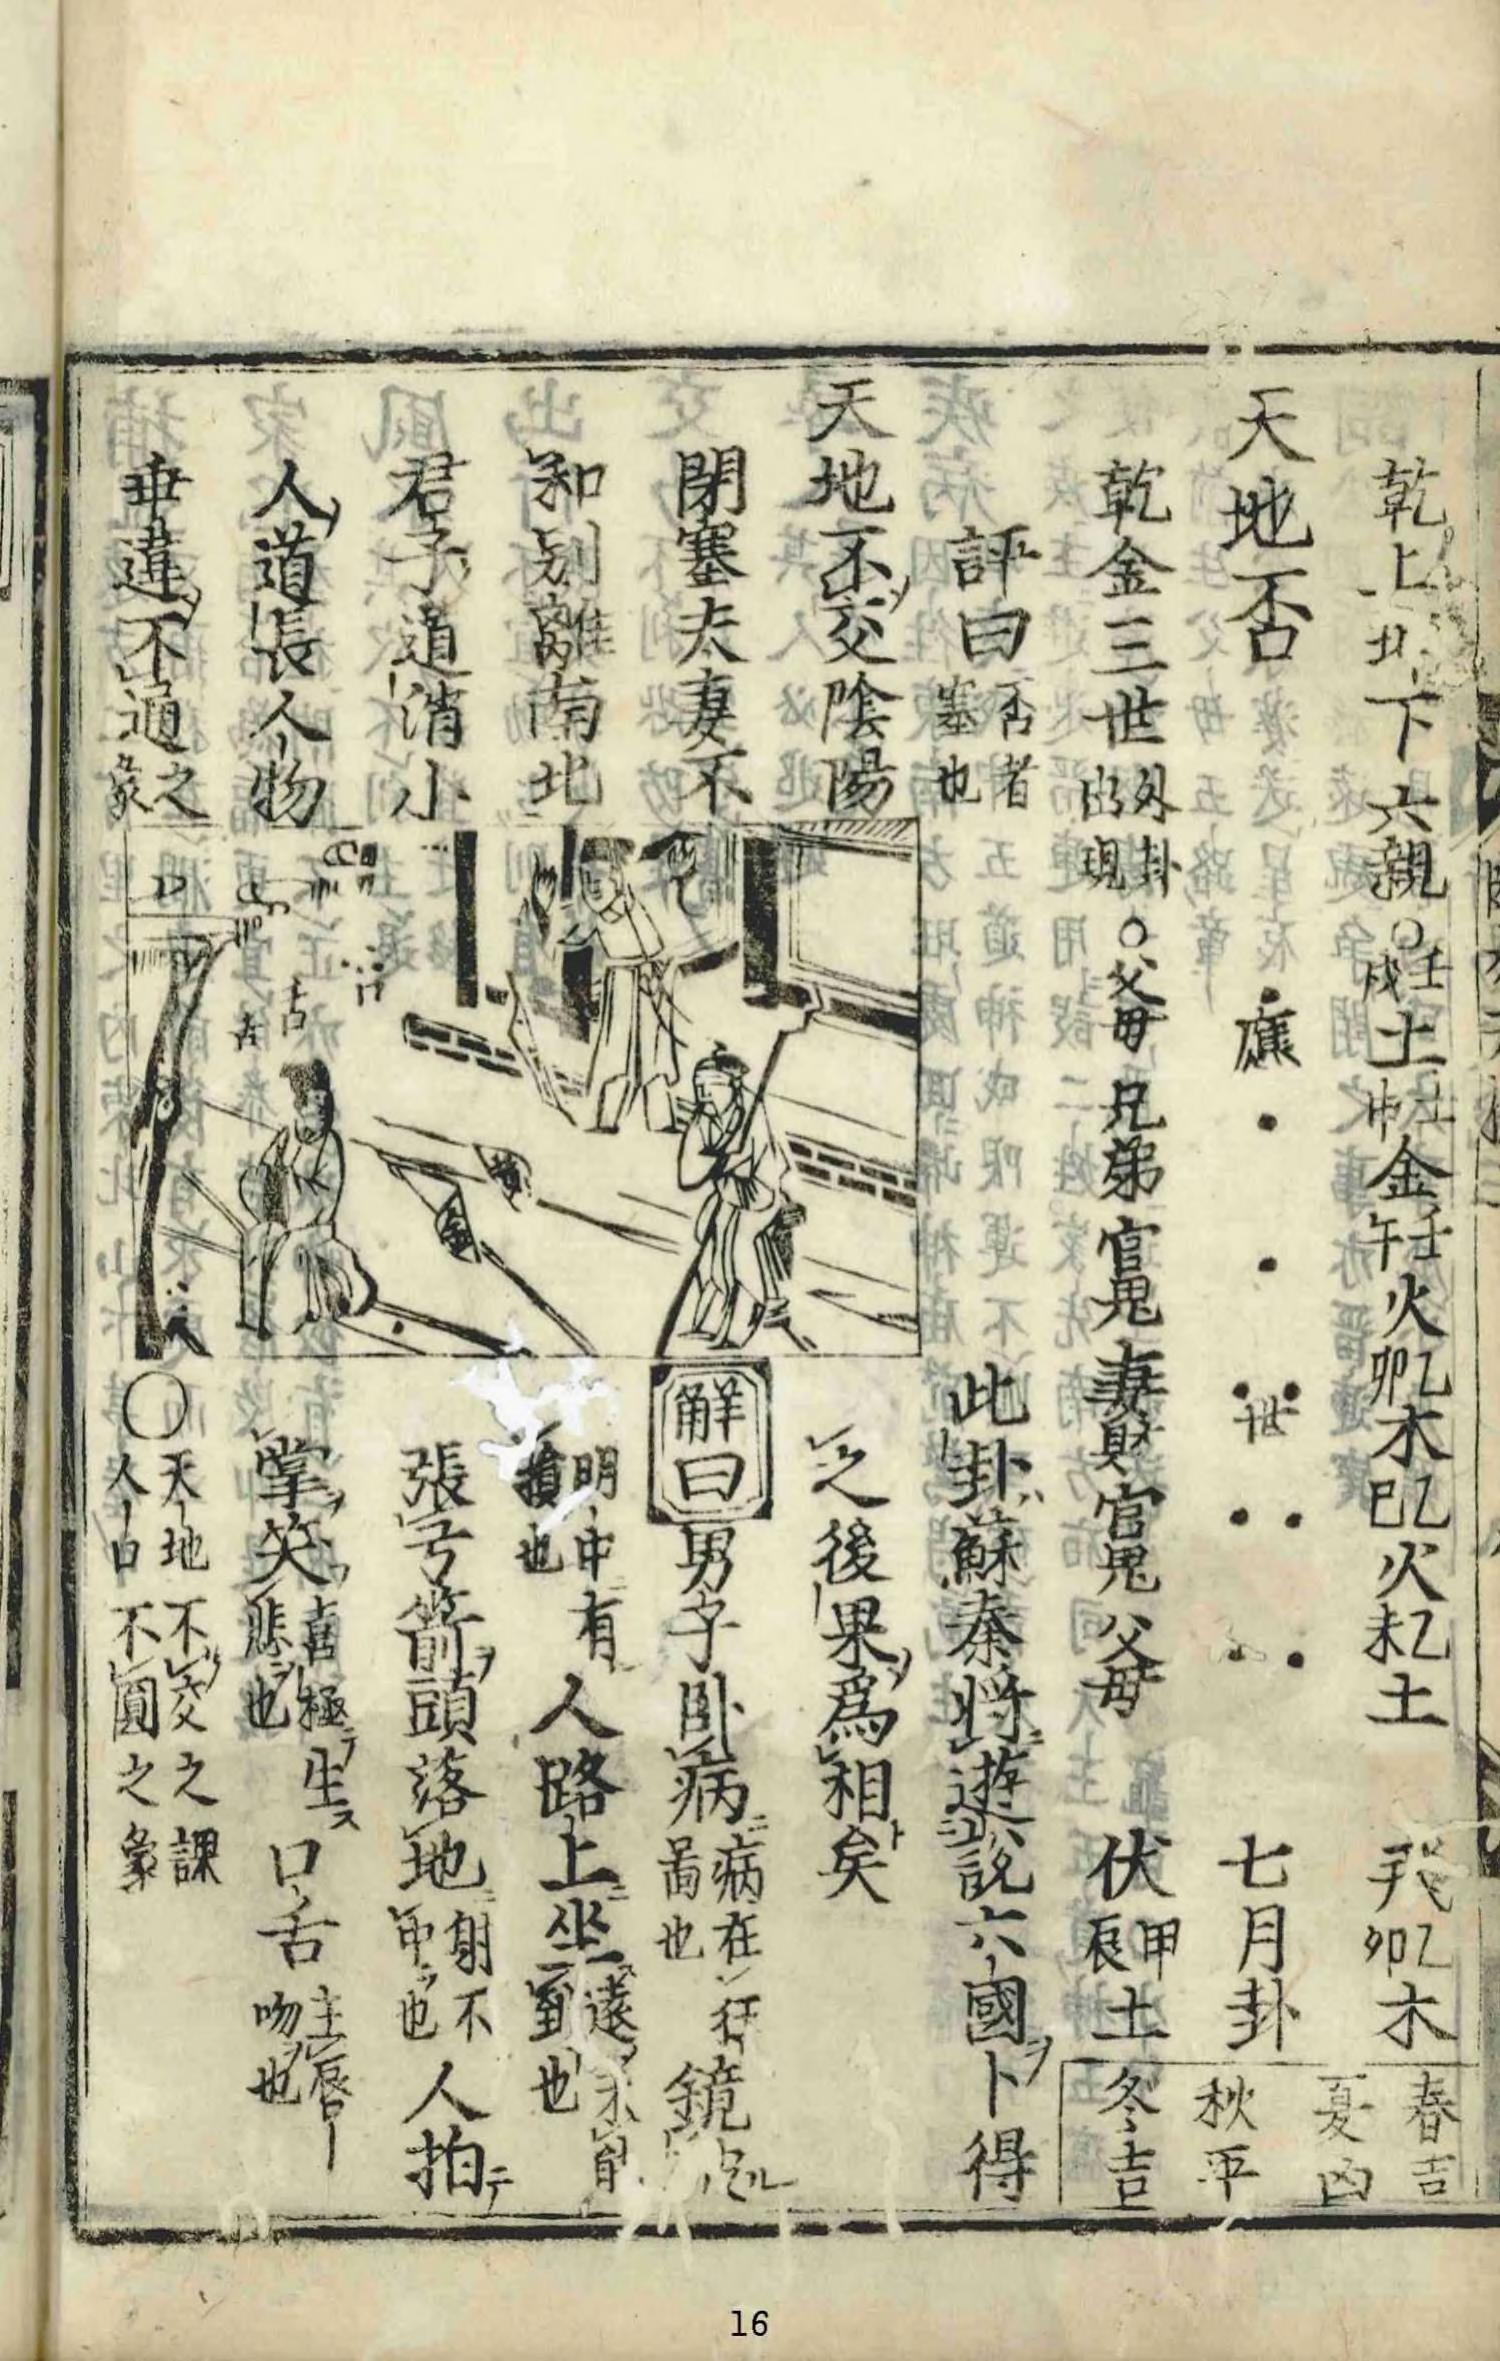 乾上坤下 六親○壬戌土壬申金壬午火乙卯木乙巳火乙未土 乙卯木
天地否 應 世 七月卦
乾金三世外卦出現○父母兄弟官鬼妻財官鬼父母 伏甲辰土
春吉
夏凶
秋平
冬吉
評曰否者塞也 此卦蘇秦將遊說六國卜得
天地不交陰陽 之後果爲相矣
閉塞夫妻不
和別離南北
君子道消小
人道長人物
乖違不通之象
古
古
口
解曰男子臥病病在啚也 鏡
明中有損也 人路上坐遠未能到也
張弓箭頭落地射不中也 人拍
掌笑喜極生悲也 口舌主唇吻也
○天地不交之課
人口不圓之象
16